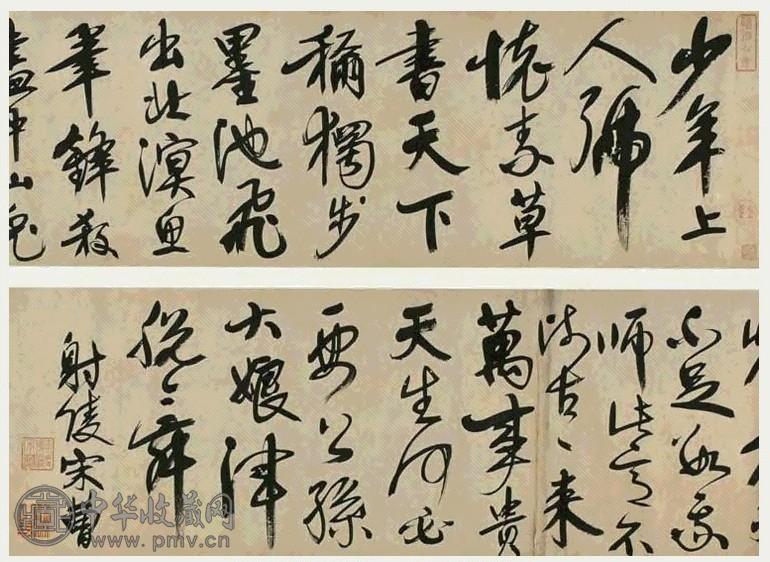 少年上
人號
懷素草
書天下
稱獨步
墨池飛
出北溟魚
筆鋒殺
盡中山兔
不足數我
師此意不
師古〻來
萬事貴
天生何必
要公孫
大娘渾
脫舞
射陵宋曹
中华收藏网
www.pmv.cn